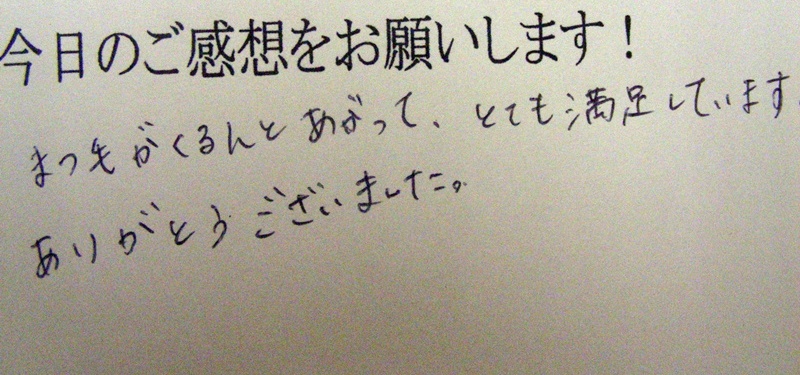 今日のご感想をお願いします！
まつ毛がくるんとあがって、とても満足しています。
ありがとうございました。